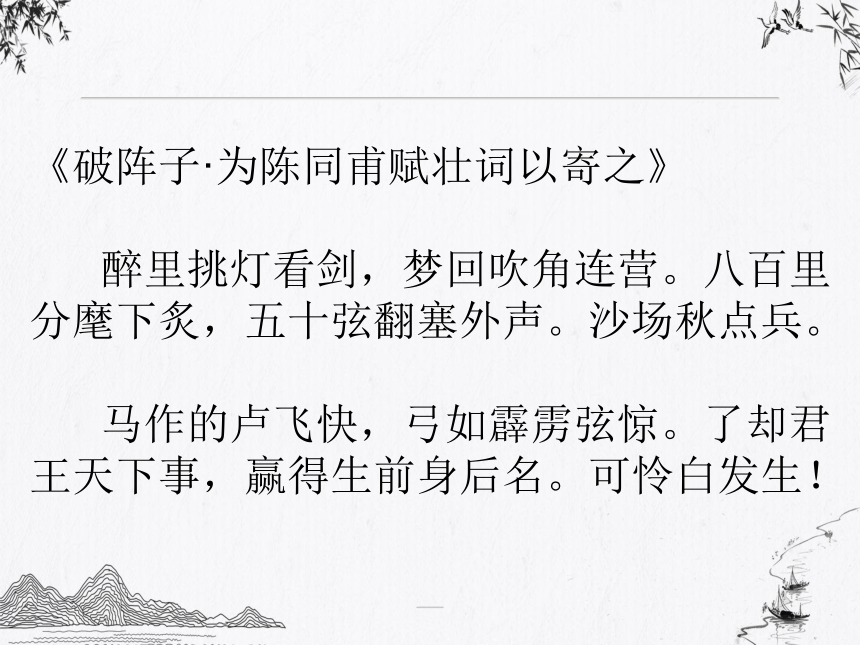 《破阵子·为陈同甫赋壮词以寄之》
醉里挑灯看剑，梦回吹角连营。八百里
分麾下炙，五十弦翻塞外声。沙场秋点兵。
马作的卢飞快，弓如霹雳弦惊。了却君
王天下事，赢得生前身后名。可怜白发生！